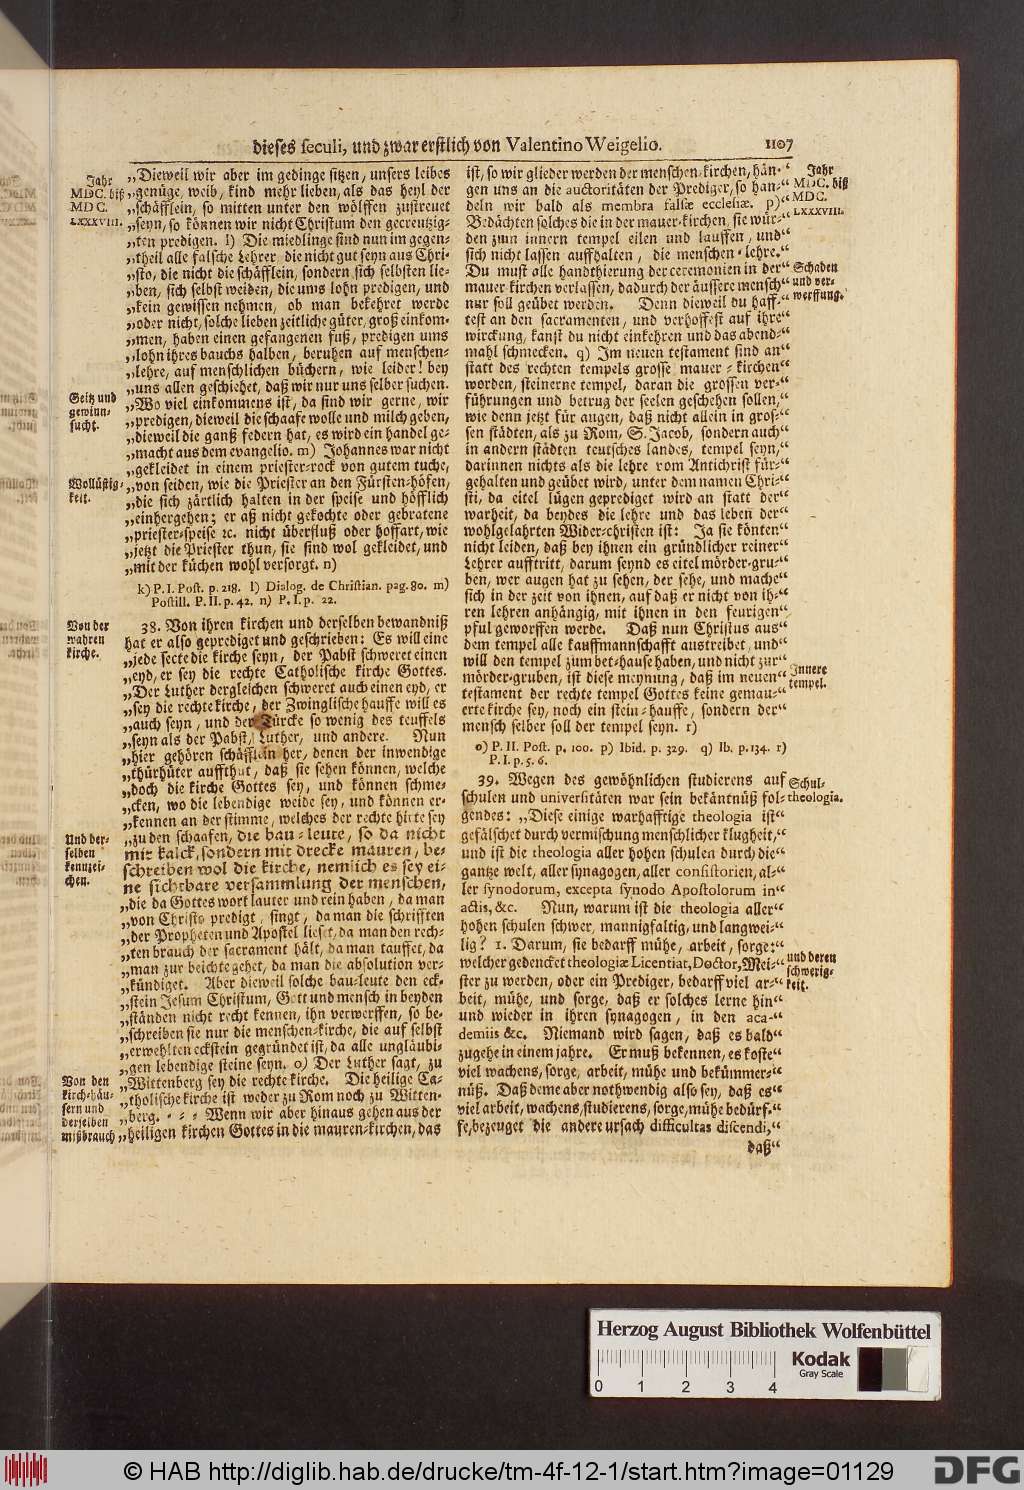 dieses seculi, und zwar erstlich von Valentino Weigelio. 1107
Jahr
MDC. biß
MDC.
LXXXVIII.
„Dieweil wir aber im gedinge sitzen, unsers leibes
„genüge, weib, kind mehr lieben, als das heyl der
„schäfflein, so mitten unter den wölffen zustreuet
„seyn, so können wir nicht Christum den gecreutzig-
„ten predigen. l) Die miedlinge sind nun im gegen-
„theil alle falsche Lehrer, die nicht gut seyn aus Chri-
„sto, die nicht die schäfflein, sondern sich selbsten lie-
„ben, sich selbst weiden, die ums lohn predigen, und
„kein gewissen nehmen, ob man bekehret werde
„oder nicht, solche lieben zeitliche güter, groß einkom-
„men, haben einen gefangenen fuß, predigen ums
„lohn ihres bauchs halben, beruhen auf menschen-
„lehre, auf menschlichen büchern, wie leider! bey
„uns allen geschiehet, daß wir nur uns selber suchen.
Geitz und
gewinn-
sucht.
„Wo viel einkommens ist, da sind wir gerne, wir
„predigen, dieweil die schaafe wolle und milch geben,
„dieweil die ganß federn hat, es wird ein handel ge-
„macht aus dem evangelio. m) Johannes war nicht
„gekleidet in einem priester-rock von gutem tuche,
Wollüstig-
keit.
„von seiden, wie die Priester an den Fürsten-höfen,
„die sich zärtlich halten in der speise und höfflich
„einhergehen; er aß nicht gekochte oder gebratene
„priester-speise ꝛc. nicht überfluß oder hoffart, wie
„jetzt die Priester thun, sie sind wol gekleidet, und
„mit der küchen wohl versorgt. n)
k) P. I. Post. p. 218. l) Dialog. de Christian. pag. 80. m)
Postill. P. II. p. 42. n) P. I. p. 22.
Von der
wahren
kirche.
38. Von ihren kirchen und derselben bewandniß
hat er also geprediget und geschrieben: Es will eine
„jede secte die kirche seyn, der Pabst schweret einen
„eyd, er sey die rechte Catholische kirche Gottes.
„Der Luther dergleichen schweret auch einen eyd, er
„sey die rechte kirche, der Zwinglische hauffe will es
„auch seyn, und der Türcke so wenig des teuffels
„seyn als der Pabst, Luther, und andere. Nun
„hier gehören schäfflein her, denen der inwendige
„thürhüter auffthut, daß sie sehen können, welche
„doch die kirche Gottes sey, und können schme-
„cken, wo die lebendige weide sey, und können er-
„kennen an der stimme, welches der rechte hirte sey
Und der-
selben
kennzei-
chen.
„zu den schaafen, die bau-leute, so da nicht
mit kalck, sondern mit drecke mauren, be-
schreiben wol die kirche, nemlich es sey ei-
ne sichtbare versammlung der menschen,
„die da Gottes wort lauter und rein haben, da man
„von Christo predigt, singt, da man die schrifften
„der Propheten und Apostel lieset, da man den rech-
„ten brauch der sacrament hält, da man tauffet, da
„man zur beichte gehet, da man die absolution ver-
„kündiget. Aber dieweil solche bau-leute den eck-
„stein Jesum Christum, Gott und mensch in beyden
„ständen nicht recht kennen, ihn verwerffen, so be-
„schreiben sie nur die menschen-kirche, die auf selbst
„erwehlten eckstein gegründet ist, da alle ungläubi-
„gen lebendige steine seyn. o) Der Luther sagt, zu
Von den
kirch-häu-
sern und
derselben
mißbrauch
„Wittenberg sey die rechte kirche. Die heilige Ca-
„tholische kirche ist weder zu Rom noch zu Witten-
„berg. - - - Wenn wir aber hinaus gehen aus der
„heiligen kirchen Gottes in die mauren-kirchen, das
ist, so wir glieder werden der menschen-kirchen, hän-“
gen uns an die auctoritäten der Prediger, so han-“
deln wir bald als membra falsæ ecclesiæ. p)“
Bedächten solches die in der mauer-kirchen, sie wür-“
den zum innern tempel eilen und lauffen, und“
sich nicht lassen auffhalten, die menschen-lehre.“
Jahr
MDC. biß
MDC.
LXXXVIII.
Du must alle handthierung der ceremonien in der“
mauer-kirchen verlassen, dadurch der äussere mensch“
nur soll geübet werden. Denn dieweil du haff-“
test an den sacramenten, und verhoffest auf ihre“
Schaden
und ver-
werffung.
wirckung, kanst du nicht einkehren und das abend-“
mahl schmecken. q) Im neuen testament sind an“
statt des rechten tempels grosse mauer-kirchen“
worden, steinerne tempel, daran die grossen ver-“
führungen und betrug der seelen geschehen sollen,“
wie denn jetzt für augen, daß nicht allein in gros-“
sen städten, als zu Rom, S. Jacob, sondern auch“
in andern städten teutsches landes, tempel seyn,“
darinnen nichts als die lehre vom Antichrist für-“
gehalten und geübet wird, unter dem namen Chri-“
sti, da eitel lügen geprediget wird an statt der“
warheit, da beydes die lehre und das leben der“
wohlgelahrten Wider-christen ist: Ja sie könten“
nicht leiden, daß bey ihnen ein gründlicher reiner“
Lehrer aufftritt, darum seynd es eitel mörder-gru-“
ben, wer augen hat zu sehen, der sehe, und mache“
sich in der zeit von ihnen, auf daß er nicht von ih-“
ren lehren anhängig, mit ihnen in den feurigen“
pful geworffen werde. Daß nun Christus aus“
dem tempel alle kauffmannschafft austreibet, und“
will den tempel zum bet-hause haben, und nicht zur“
mörder-gruben, ist diese meynung, daß im neuen“
testament der rechte tempel Gottes keine gemau-“
erte kirche sey, noch ein stein-hauffe, sondern der“
mensch selber soll der tempel seyn. r)
Innere
tempel.
o) P. II. Post. p. 100. p) Ibid. p. 329. q) Ib. p. 134. r)
P. I. p. 5. 6.
39. Wegen des gewöhnlichen studierens auf
schulen und universitäten war sein bekäntnüß fol-
Schul-
theologia.
gendes: „Diese einige warhafftige theologia ist“
gefälschet durch vermischung menschlicher klugheit,“
und ist die theologia aller hohen schulen durch die“
gantze welt, aller synagogen, aller consistorien, al-“
ler synodorum, excepta synodo Apostolorum in“
actis, &c. Nun, warum ist die theologia aller“
hohen schulen schwer, mannigfaltig, und langwei-“
lig? 1. Darum, sie bedarff mühe, arbeit, sorge:“
welcher gedencket theologiæ Licentiat, Doctor, Mei-“
ster zu werden, oder ein Prediger, bedarff viel ar-“
beit, mühe, und sorge, daß er solches lerne hin“
und wieder in ihren synagogen, in den aca-“
und deren
schwerig-
keit.
demiis &c. Niemand wird sagen, daß es bald“
zugehe in einem jahre. Er muß bekennen, es koste“
viel wachens, sorge, arbeit, mühe und bekümmer-“
nüß. Daß deme aber nothwendig also sey, daß es“
viel arbeit, wachens, studierens, sorge, mühe bedürf-“
fe, bezeuget die andere ursach difficultas discendi,“
daß“
Herzog August Bibliothek Wolfenbüttel
Kodak
Gray Scale
0 1 2 3 4
© HAB http://diglib.hab.de/drucke/tm-4f-12-1/start.htm?image=01129
DFG